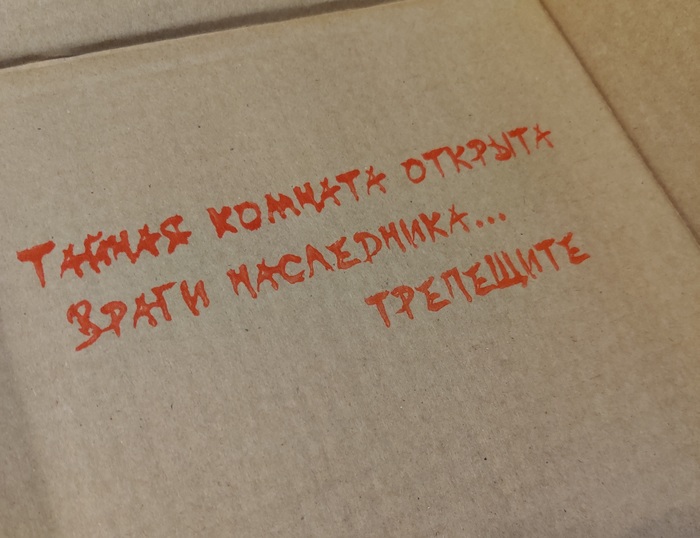 Тайная комната открыта
Враги наследника...
трепещите